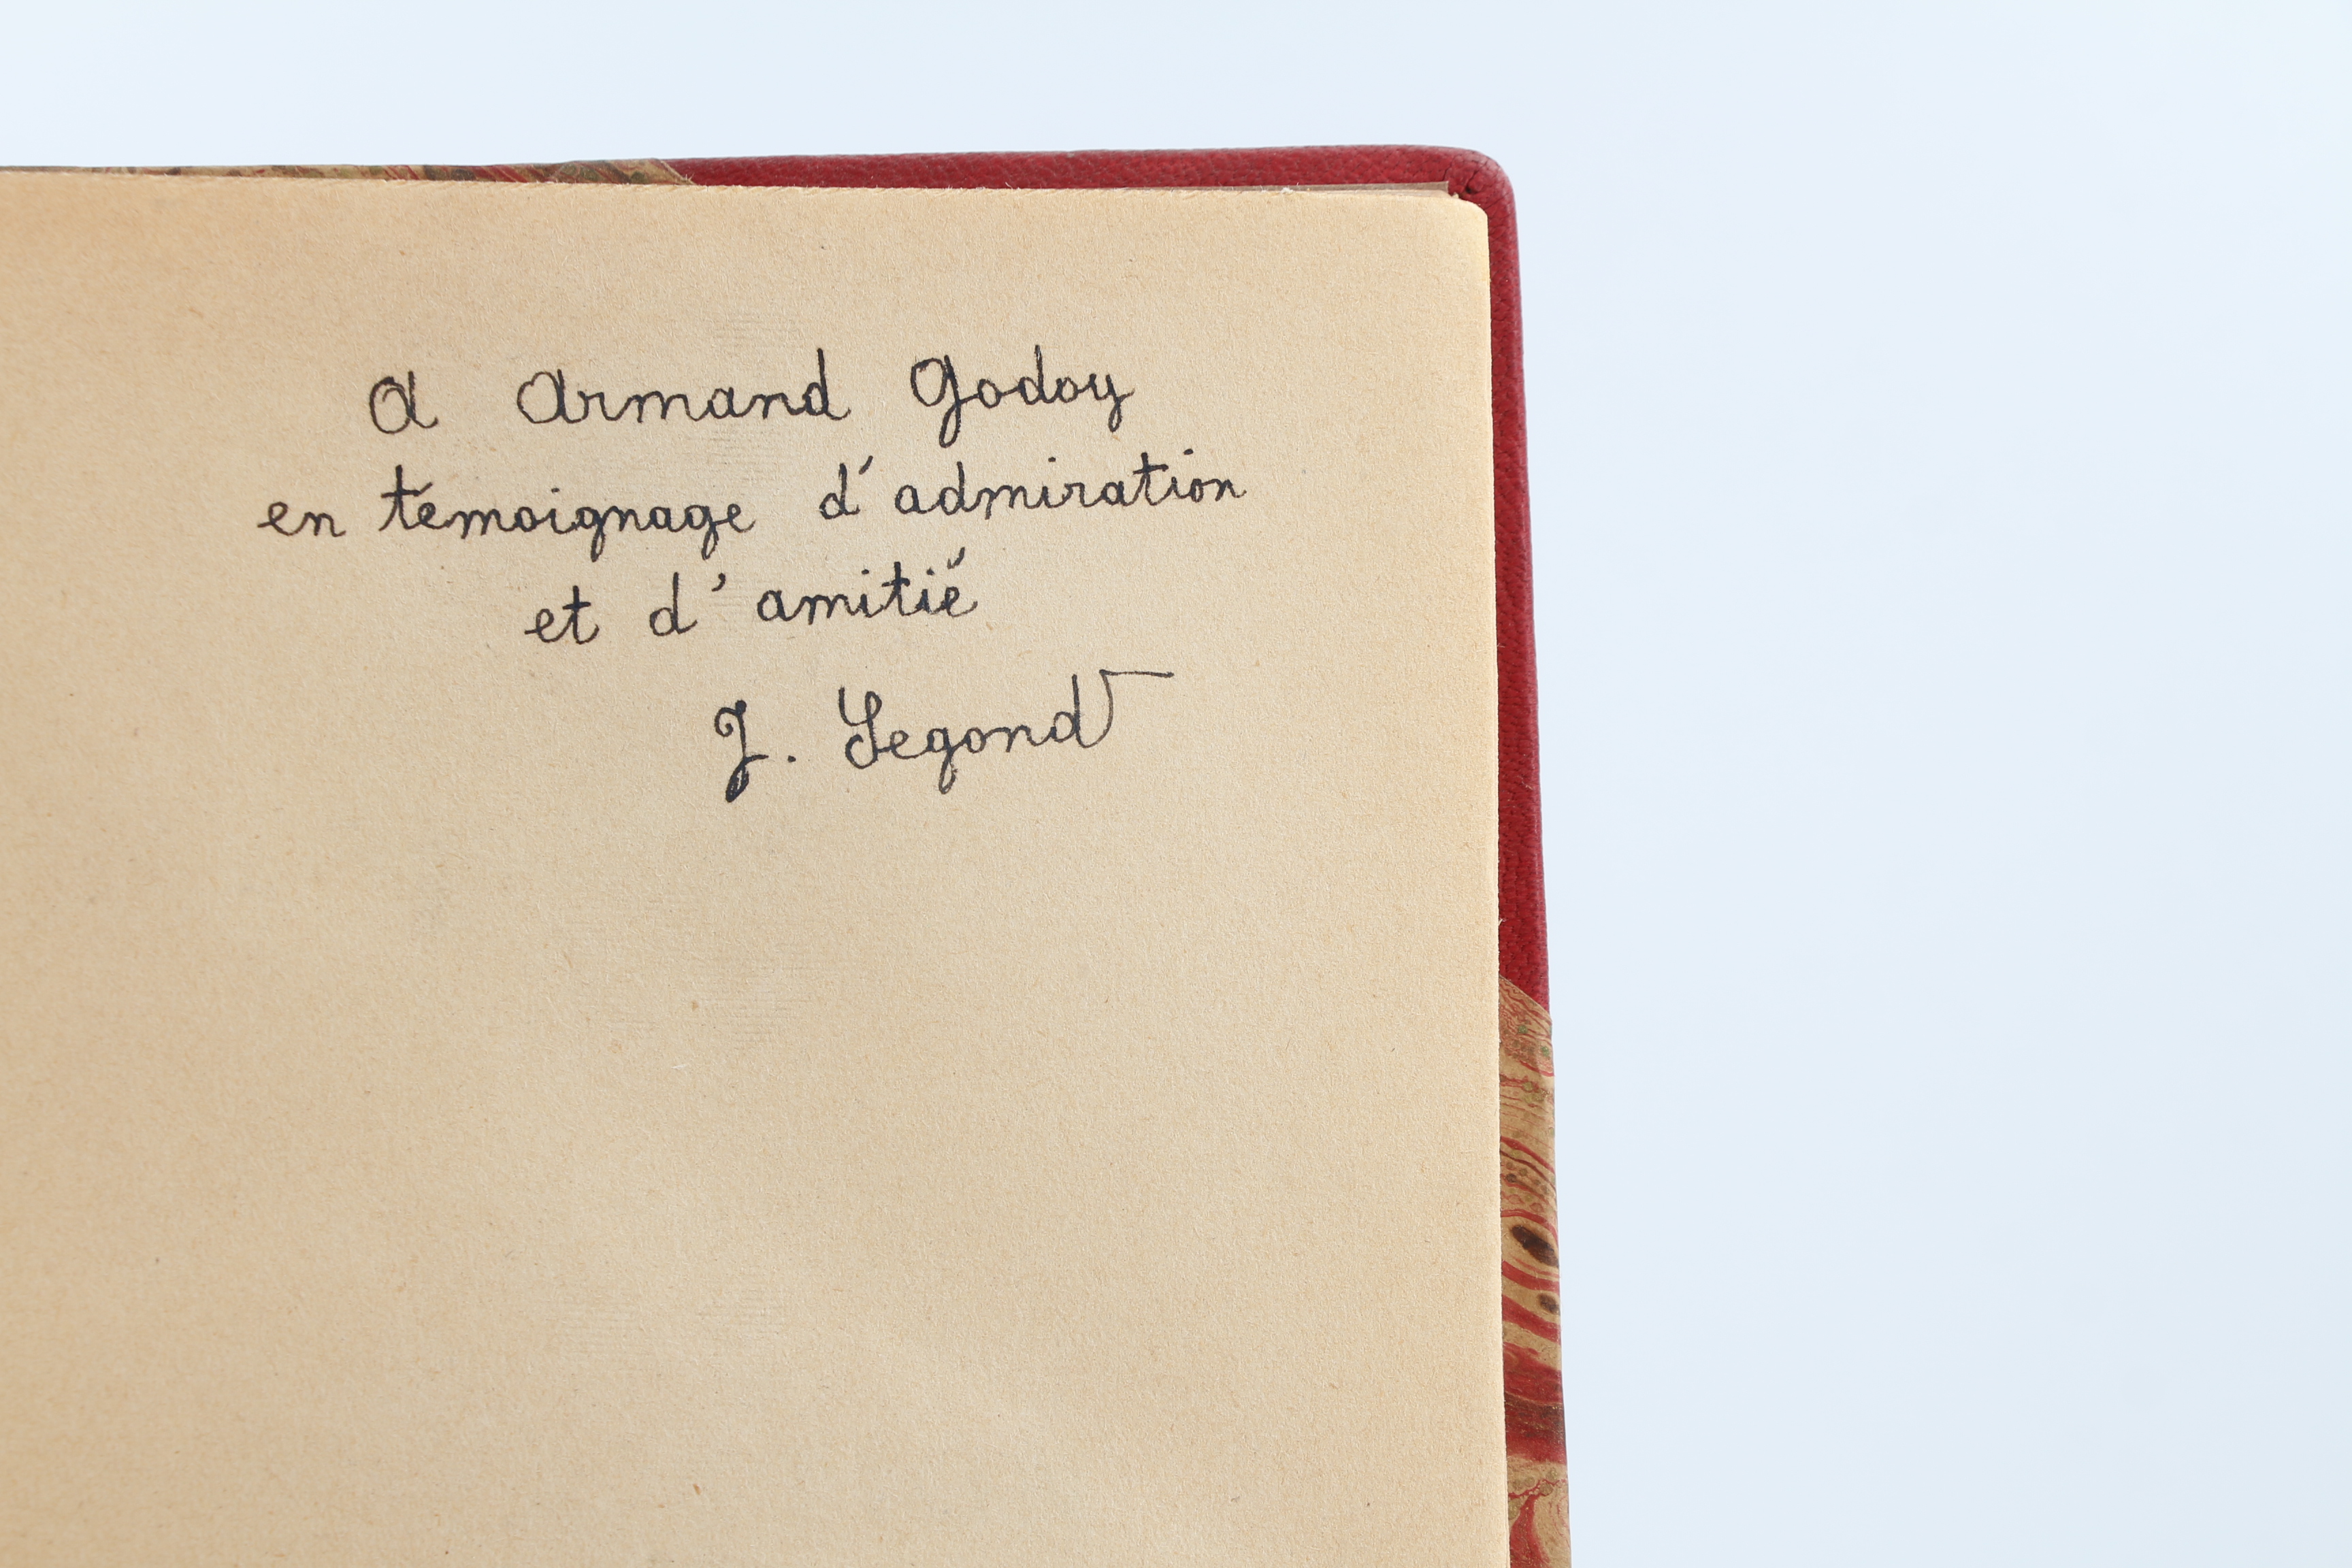 A Armand Godoy
en témoignage d'admiration
et d'amitié
J. Segond